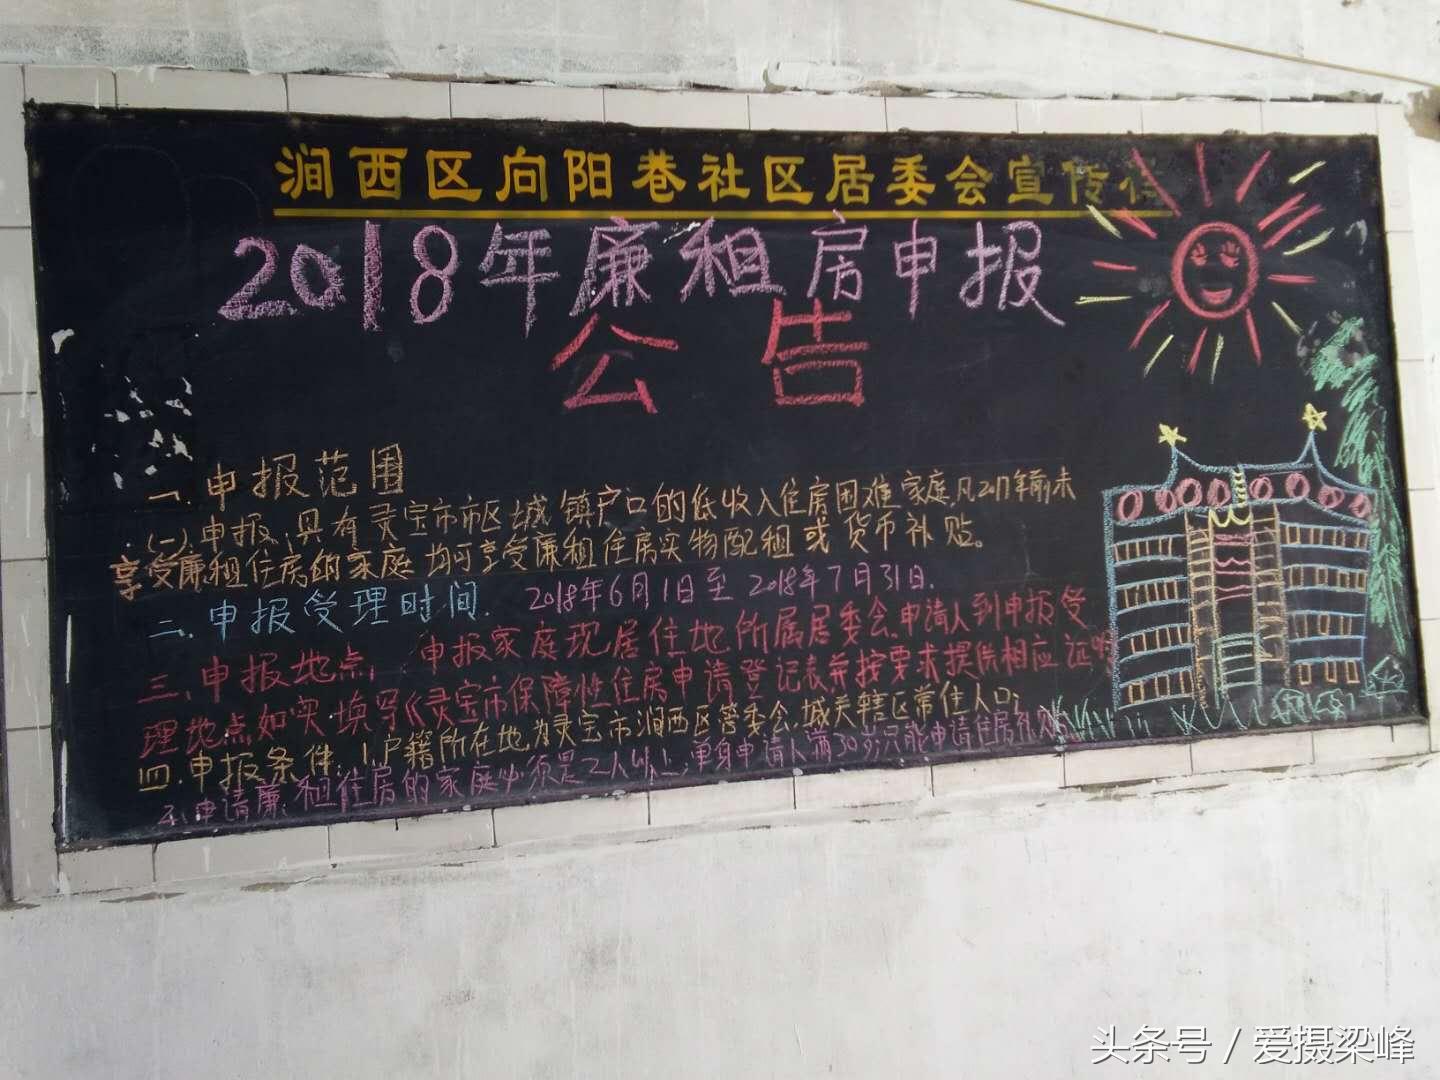 涧西区向阳巷社区居委会宣传
2018年廉租房申报
公告
一、申报范围
(一)、申报,具有灵宝市市区城镇户口的低收入住房困难家庭,凡2017年前未
享受廉租住房的家庭均可享受廉租住房实物配租或货币补贴。
二、申报受理时间. 2018年6月1日至2018年7月31日.
三、申报地点, 申报家庭现居住地所属居委会.申请人到申报受
理地点如实填写《灵宝市保障性住房申请登记表并按要求提供相应证明
四.申报条件:1户籍所在地为灵宝市涧西区管委会.城关辖区常住人口;
2、申请廉租住房的家庭必须是2人以上,单身申请人满30岁只能申请住房补贴
头条号 / 爱摄梁峰